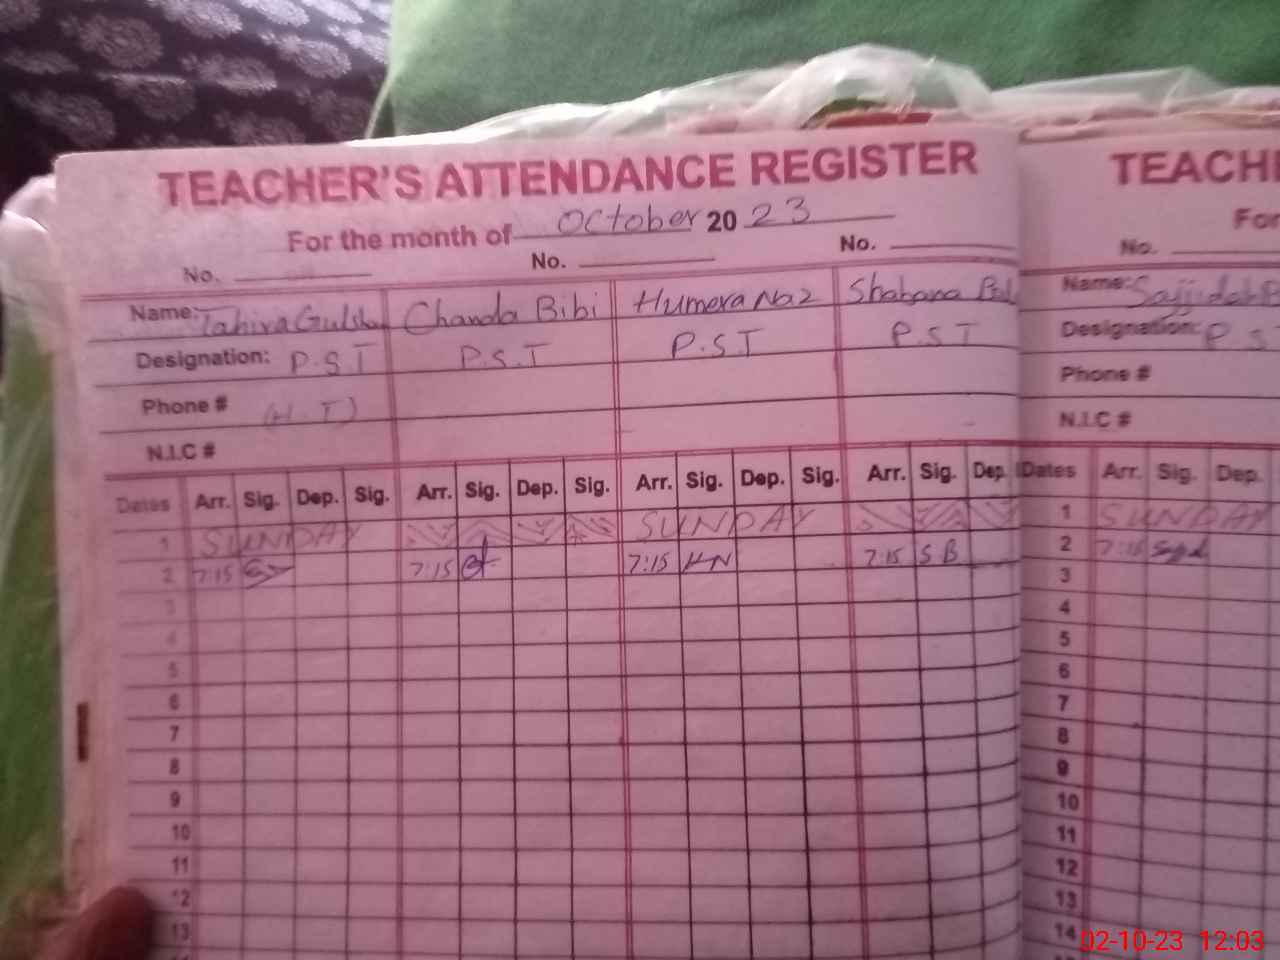 TEACHER'S ATTENDANCE REGISTER
For the month of October 20 23
No. No. No.
Name: Tahira Gulshan Chanda Bibi Humera Naz Shabana
Designation: P.S.T P.S.T P.S.T P.S.T
Phone # (H.T)
N.I.C #
Dates Arr. Sig. Dep. Sig. Arr. Sig. Dep. Sig. Arr. Sig. Dep. Sig. Arr. Sig. Dep.
1 SUNDAY SUNDAY
2 7:15 7:15 7:15 HN 7:15 S B
3
4
5
6
7
8
9
10
11
12
13
TEACHE
For
No.
Name: Sajjidah
Designation: P.S
Phone #
N.I.C #
Dates Arr. Sig. Dep.
1 SUNDAY
2 7:15
3
4
5
6
7
8
9
10
11
12
13
14
02-10-23 12:03